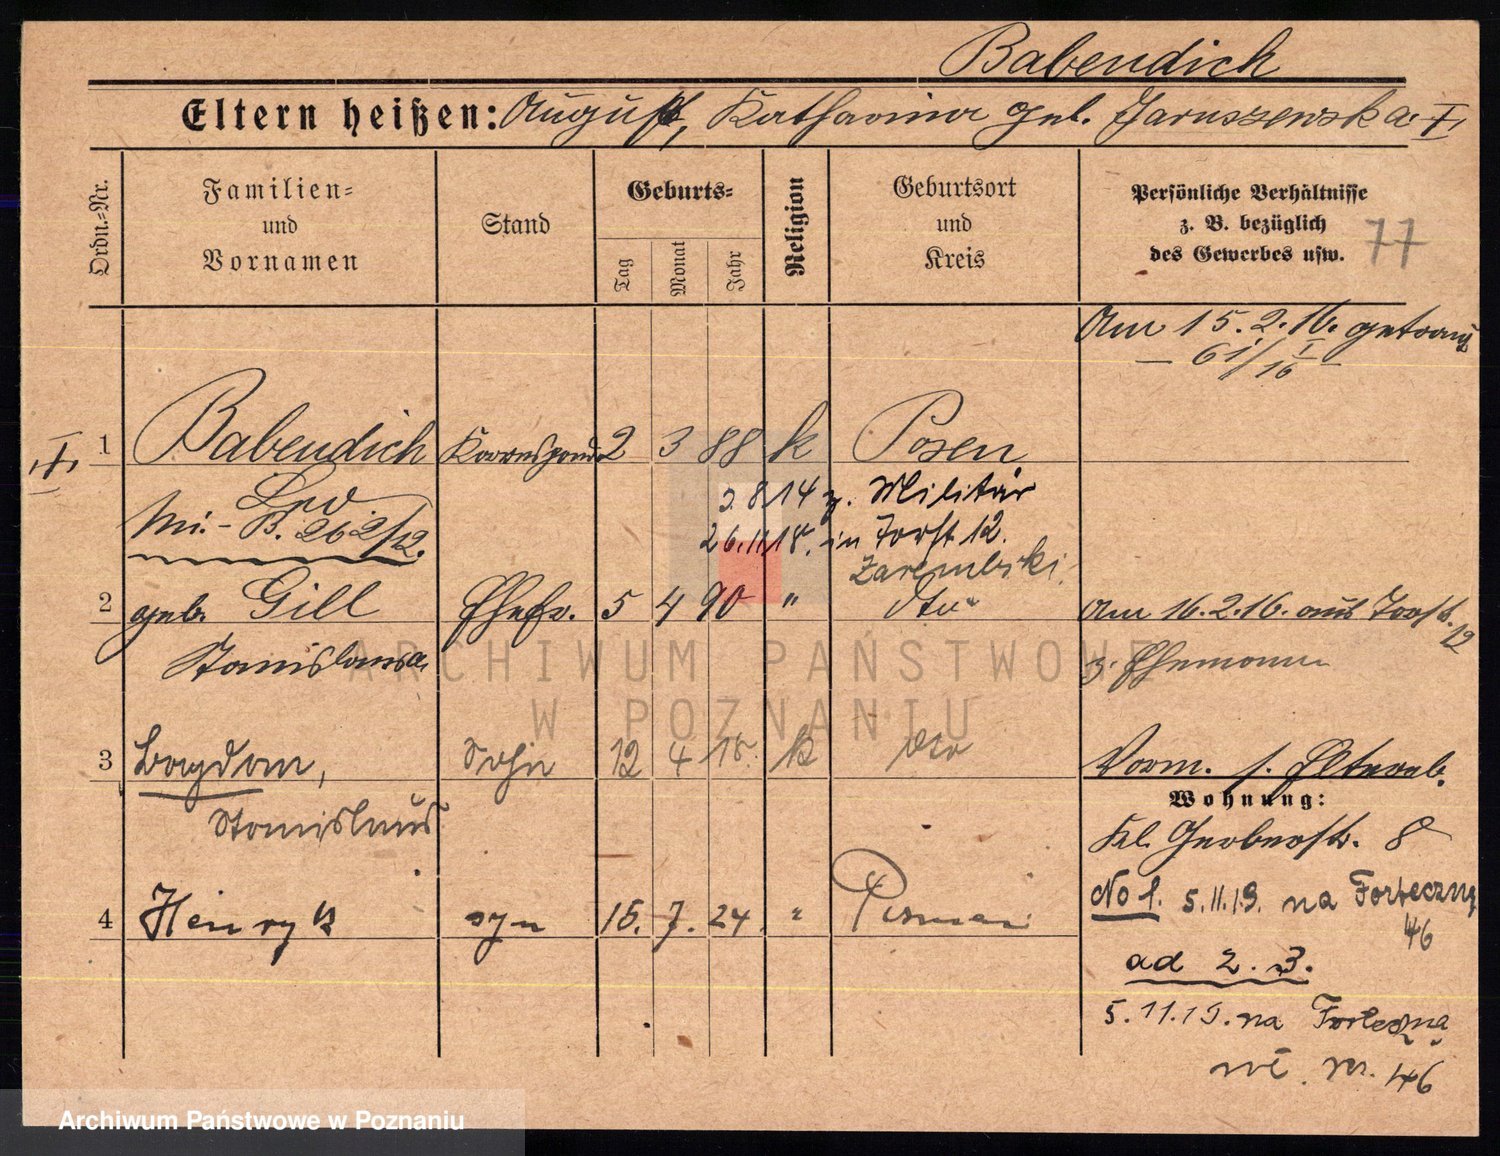 Babendich
Eltern heißen: August, Katharina geb. Jaruszewska
Ordn.-Nr.
Familien-
und
Vornamen
Stand
Geburts-
Tag
Monat
Jahr
Religion
Geburtsort
und
Kreis
Persönliche Verhältnisse
z. B. bezüglich
des Gewerbes usw.
77
Am 15.2.16. getraut
61/16
1 Babendich Korrespond. 2 3 88 k Posen
3.8.14 z. Militär
Mi.- B. 262/12.
26.11.18. in Forst 12.
Zarembski
2 geb. Gill Ehefr. 5 4 90 " dto
Am 16.2.16. aus Forst. 12
Stanislawa
z. Ehemann
3 Bogdan, Sohn 12 4 18. k dto
Vorm. s. Elternb.
Stanislaus
Wohnung:
Kl. Gerberstr. 8
4 Henryk syn 15. 7. 24 " Poznań
No 1. 5.11.19. na Forteczną
46
ad 2. 3.
5.11.19. na Forteczną
nr. 46
ARCHIWUM PAŃSTWOWE
W POZNANIU
Archiwum Państwowe w Poznaniu